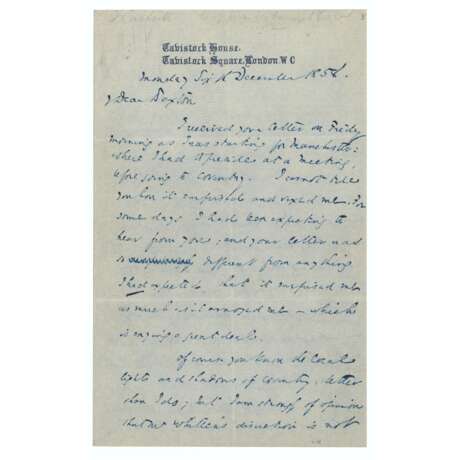 Tavistock House.
Tavistock Square, London. W C
Monday Sixth December 1858.
My Dear Paxton
I received your letter on Friday
morning as I was starting for Manchester:
where I had to preside at a meeting,
before going to Coventry. I cannot tell
you how it surprised and vexed me. For
some days I had been expecting to
hear from you; and your letter was
so different from anything
I had expected that it surprised me
as much as it annoyed me – which
is saying a great deal.
Of course you know the local
lights and shadows of Coventry, better
than I do; but I am strongly of opinion
that Mr discretion is not